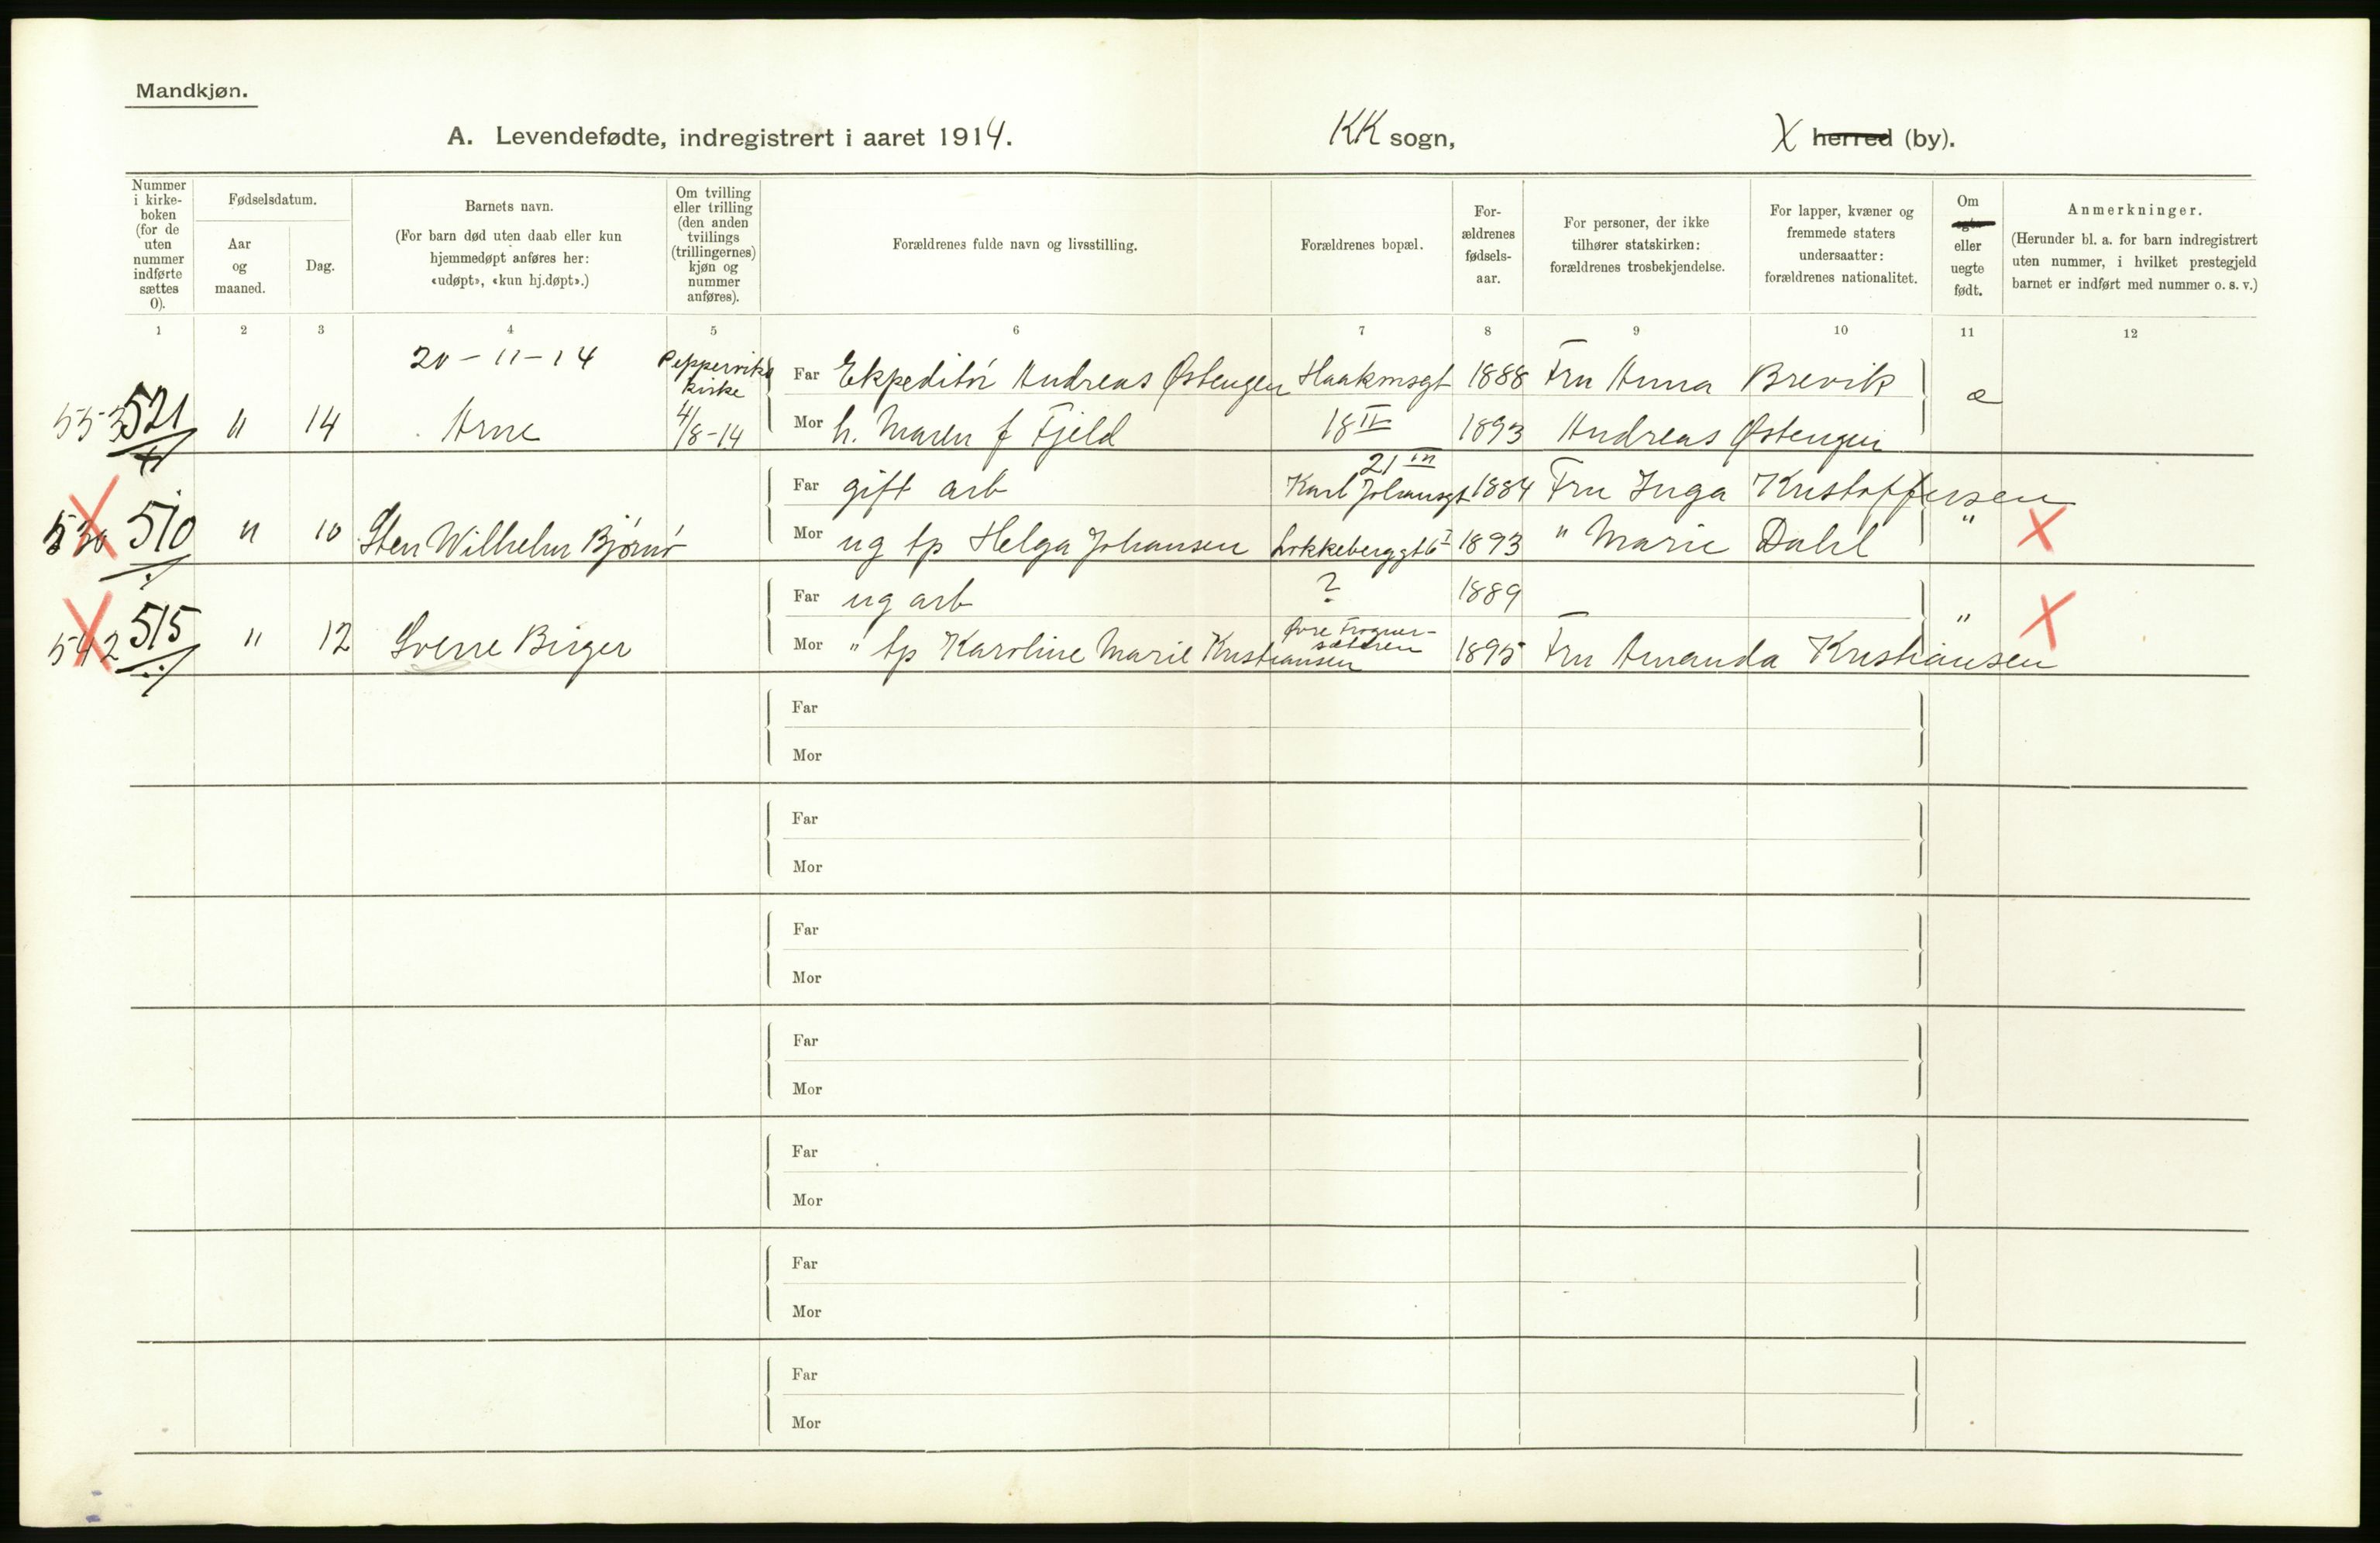 Mandkjøn.
A. Levendefødte, indregistrert i aaret 1914. KK sogn, X herred (by).
Nummer i kirke-boken (for de uten nummer indførte sættes 0).
Fødselsdatum.
Aar og maaned.
Dag.
Barnets navn.
(For barn død uten daab eller kun hjemmedøpt anføres her: «udøpt», «kun hj.døpt».)
Om tvilling eller trilling (den anden tvillings (trillingernes) kjøn og nummer anføres).
Forældrenes fulde navn og livsstilling.
Forældrenes bopæl.
For-ældrenes fødsels-aar.
For personer, der ikke tilhører statskirken: forældrenes trosbekjendelse.
For lapper, kvæner og fremmede staters undersaatter: forældrenes nationalitet.
Om egte eller uegte født.
Anmerkninger.
(Herunder bl. a. for barn indregistrert uten nummer, i hvilket prestegjeld barnet er indført med nummer o. s. v.)
1 2 3 4 5 6 7 8 9 10 11 12
20-11-14 Pepperviks kirke Far Ekpeditór Andreas Østengen Haakonsgt 1888 Fru Anna Brevik
553 521 " 14 Arne 4/8-14 Mor h. Maren f Fjeld 18 IV 1893 Andreas Østengen æ
21 III
Far gift arb Karl Johansgt 1884 Fru Inga Kristoffersen
530 510 " 10 Sten Wilhelm Bjørnó Mor ug tp Helga Johansen Løkkeberggt 6 I 1893 " Marie Dahl " X
Far ug arb ? 1889
542 515 " 12 Sverre Birger Mor " tp Karoline Marie Kristiansen Øvre Frogner-sæteren 1895 Fru Amanda Kristiansen " X
Far
Mor
Far
Mor
Far
Mor
Far
Mor
Far
Mor
Far
Mor
Far
Mor